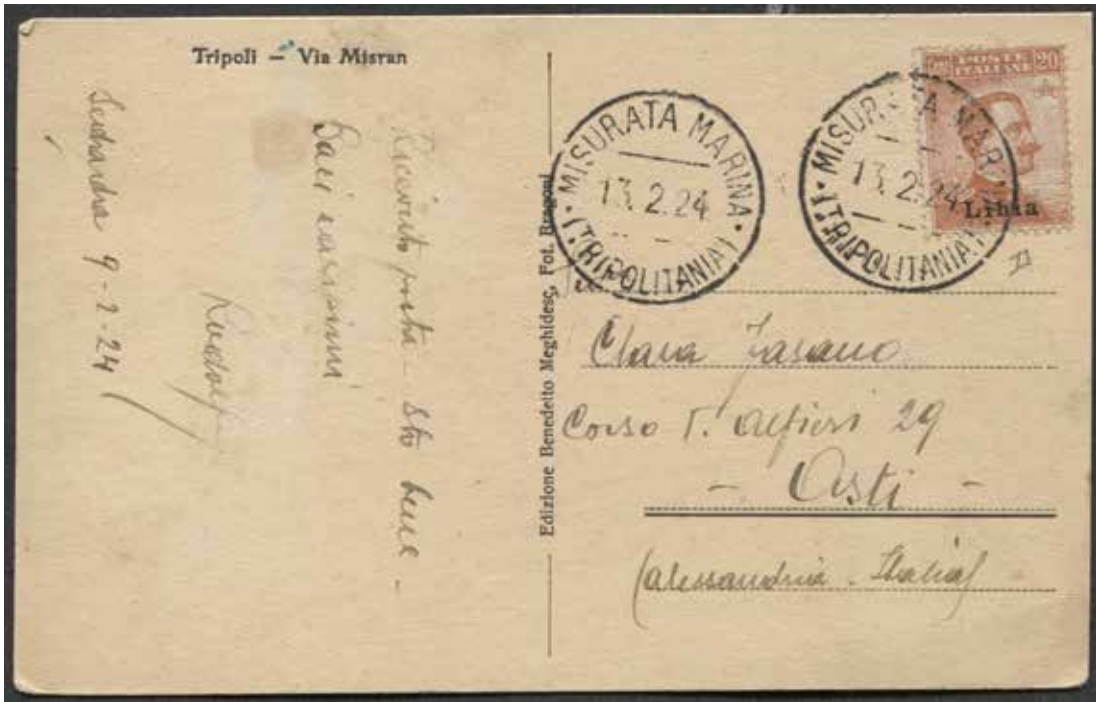 Tripoli – Via Misran
Ricevuto posta - sto bene -
Baci carissimi
Rudolf
9-2-24
Edizione Benedetto Meghidesc, Fot. Bragoni
MISURATA MARINA
13.2.24
(TRIPOLITANIA)
MISURATA MAR
13.2.24
(TRIPOLITANIA)
POSTE
ITALIANE
20
Libia
Clara Fasano
Corso V. Alfieri 29
- Asti -
(Alessandria - Italia)